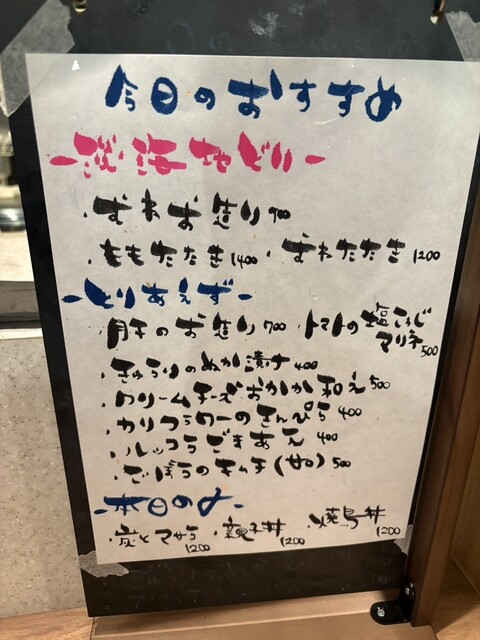 今日のおすすめ
-淡海地どり-
・むねお造り 700
・ももたたき 1400 ・むねたたき 1200
-とりあえず-
・肝のお造り 700 ・トマトの塩こうじマリネ 500
・きゅうりのぬか漬け 400
・クリームチーズおかか和え 500
・カリフラワーのきんぴら 400
・ルッコラごまあえ 400
・ごぼうのキムチ(サラ) 500
-本日の〆-
・炭とマサラ 1200 ・親子丼 1200 ・焼鳥丼 1200